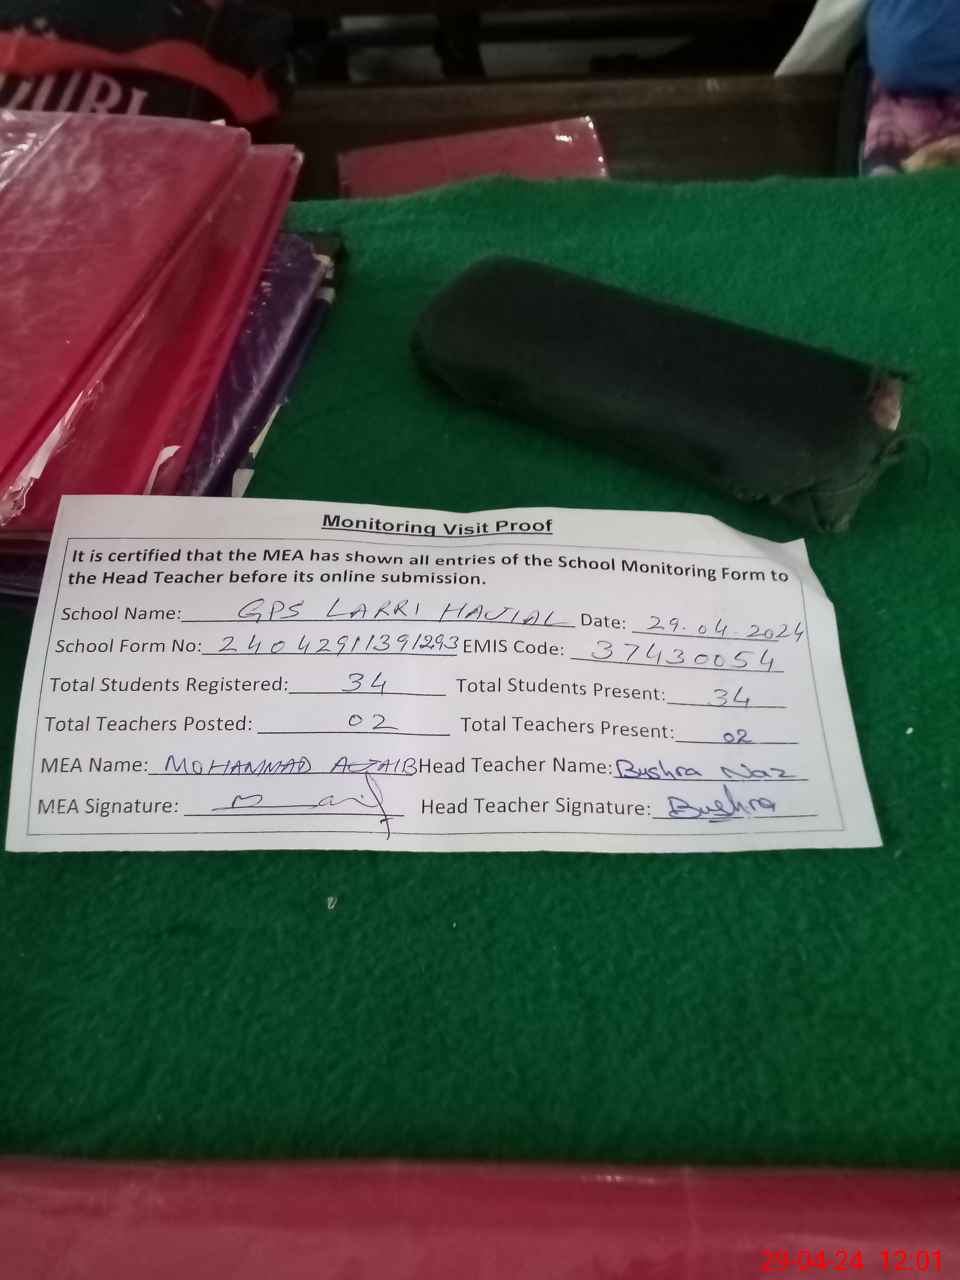 Monitoring Visit Proof
It is certified that the MEA has shown all entries of the School Monitoring Form to
the Head Teacher before its online submission.
School Name: GPS LARRI HAJIAL Date: 29.04.2024
School Form No: 24042911391293 EMIS Code: 37430054
Total Students Registered: 34 Total Students Present: 34
Total Teachers Posted: 02 Total Teachers Present: 02
MEA Name: MOHAMMAD AJAIB Head Teacher Name: Bushra Naz
MEA Signature: Head Teacher Signature: Bushra
29-04-24 12:01